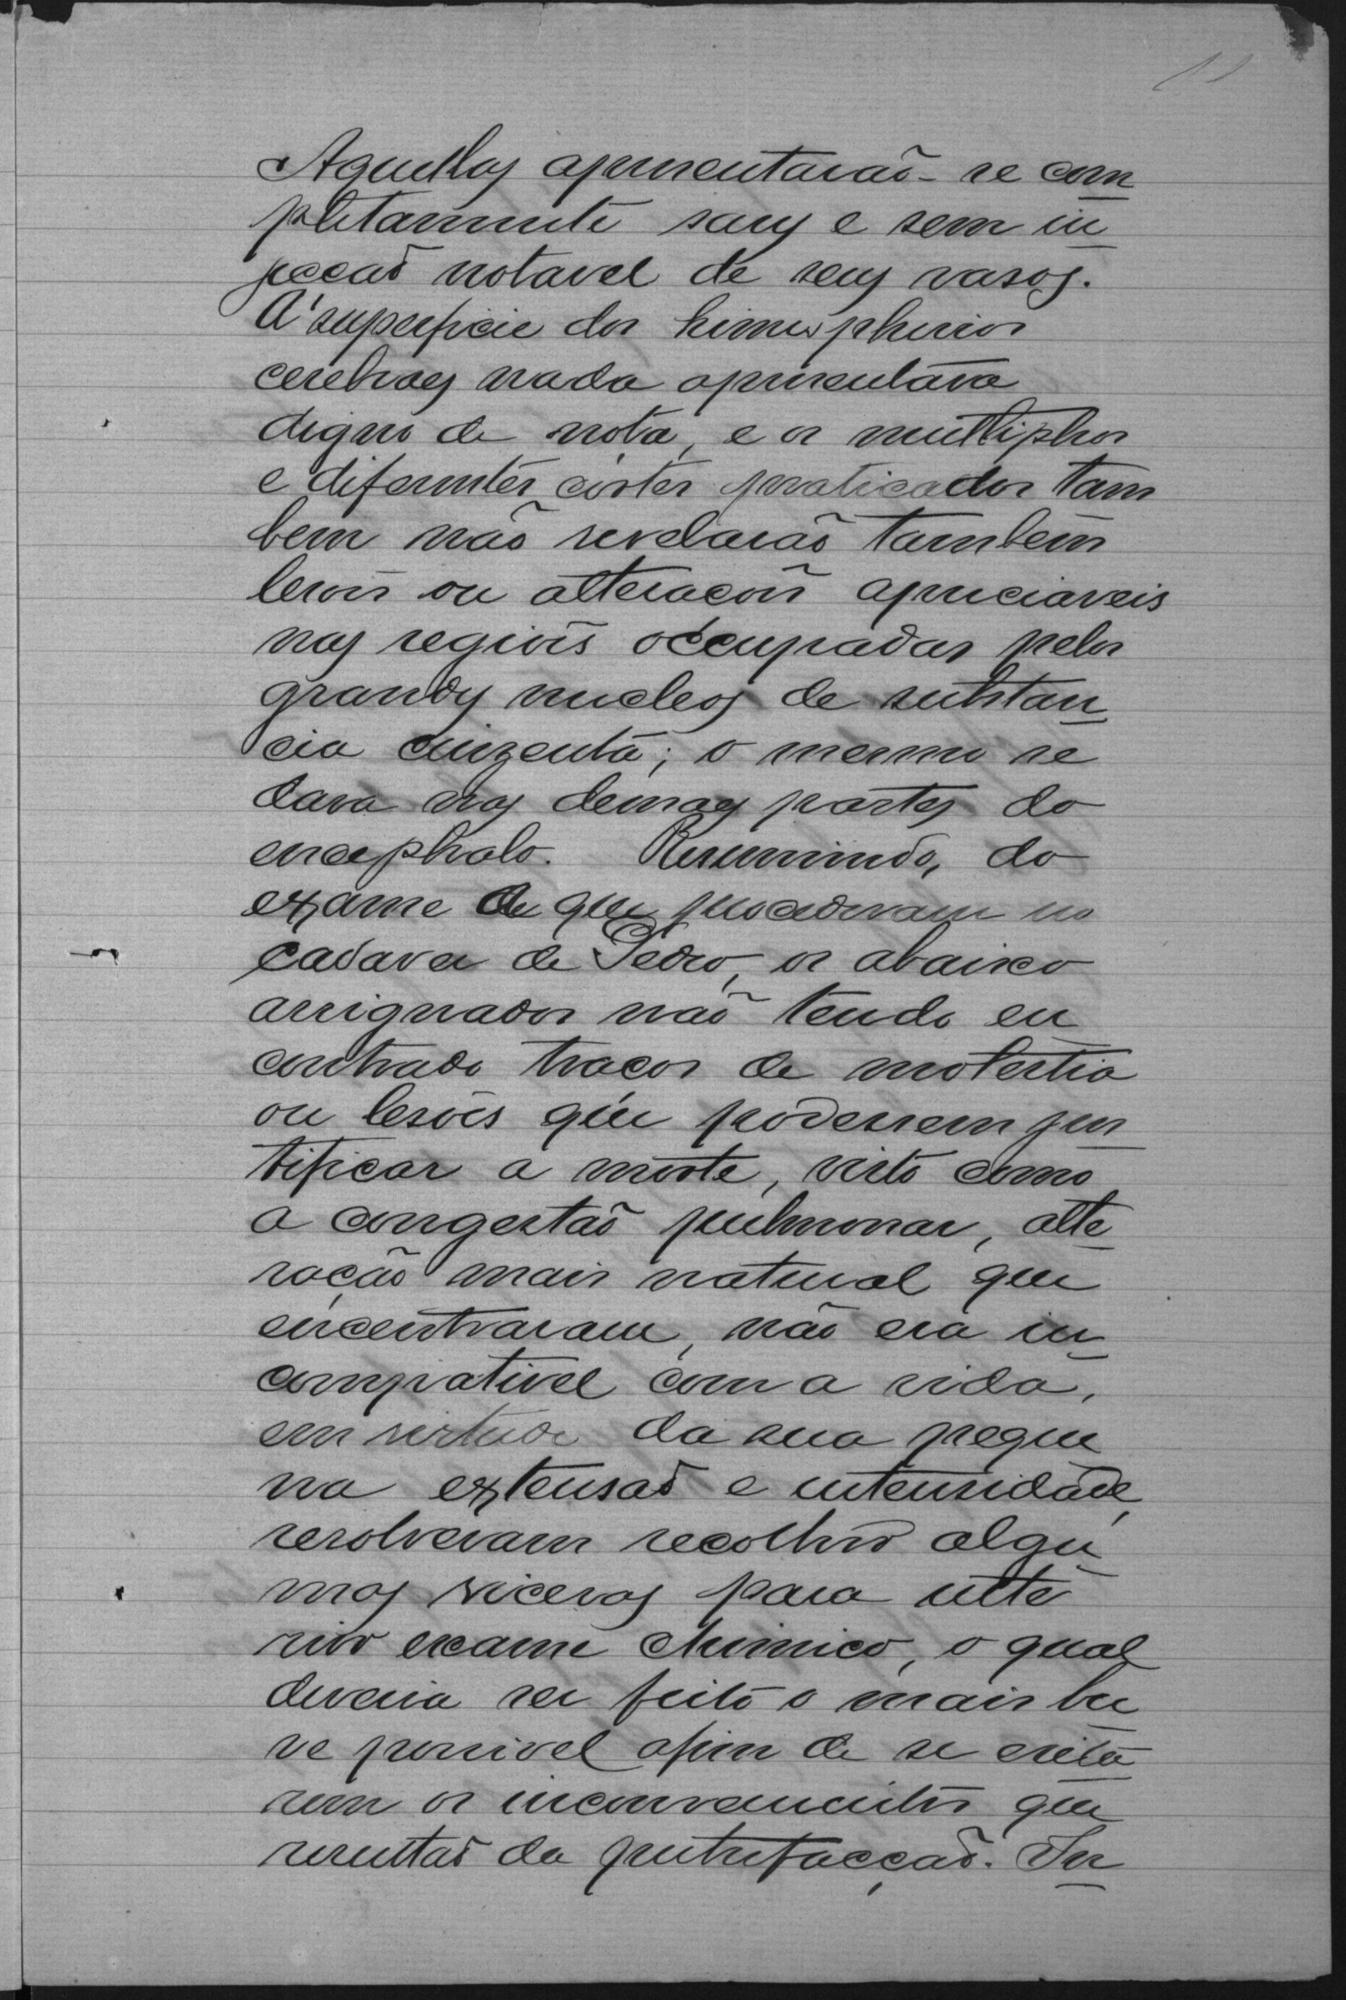 Aquellas apresentarão-se com
pletamente sans e sem in
jeccão notavel de seus vasos.
A' superficie dos himispherios
cerebraes nada apresentava
digno de nota, e os multiplos
e diferentes córtes praticados tam
bem não revelarão tambem
lesoes ou alteracões apreciaveis
nas regiões occupadas pelos
grandes nucleos de substan
cia cinzenta; o mesmo se
dava nas demaes partes do
encephalo. Resumindo, do
exame de que procederam no
cadaver de Pedro, os abaixo
assignados não tendo en
contrado tracos de molestia
ou lesões que podessem jus
tificar a morte, visto como
a congestão pulmonar, alte
ração mais natural que
encontraram, não era in
compativel com a vida,
em virtude da sua peque
na extensão e intensidade,
resolveram recolher algu
mas viceras para ulte
rior exame chimico, o qual
deveria ser feito o mais bre
ve possivel afim de se evita
rem os inconvenientes que
resultão da putrefacção.